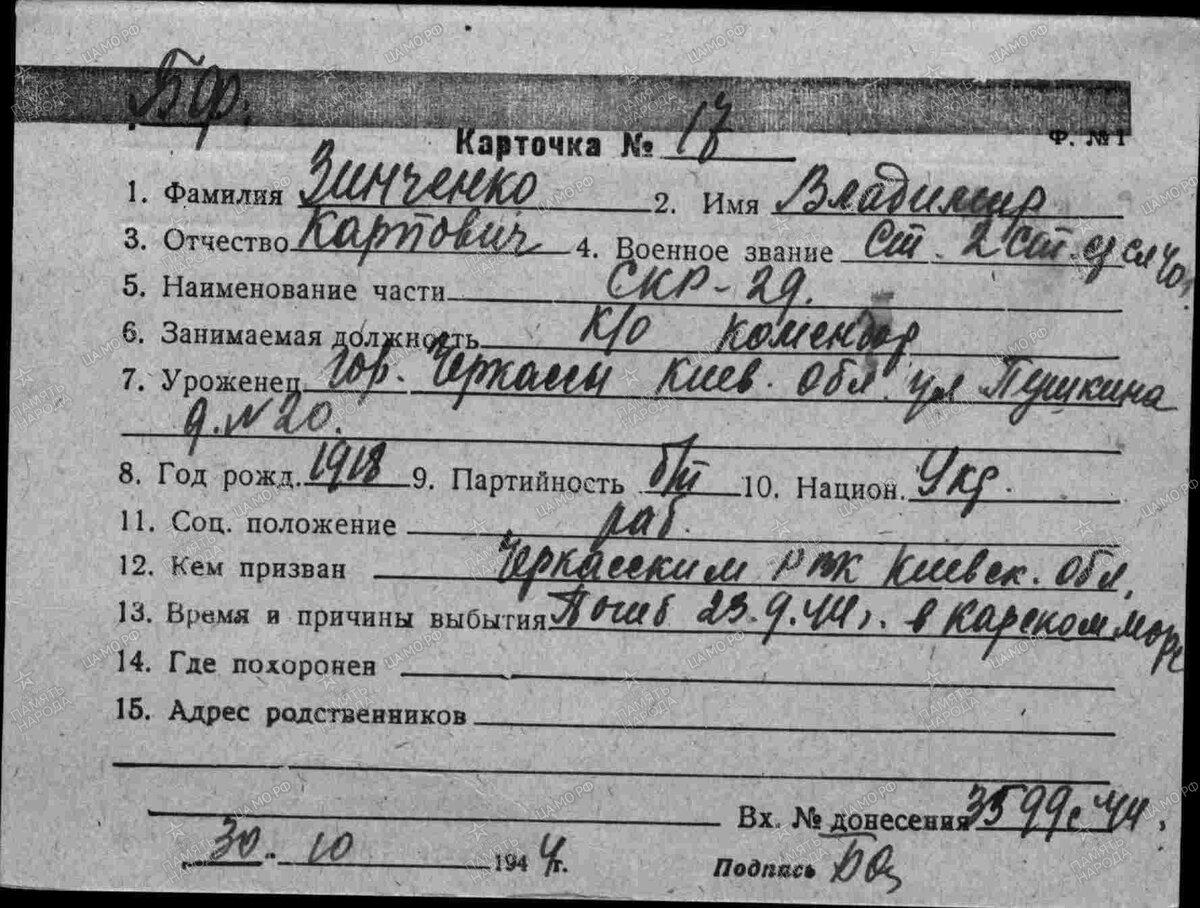 БФ.
Карточка № 17
Ф. №1
1. Фамилия Зинченко 2. Имя Владимир
3. Отчество Карпович 4. Военное звание ст. 2 ст. сл
5. Наименование части СКР-29.
6. Занимаемая должность к/о комендор
7. Уроженец гор. Черкассы Киев. обл. ул Пушкина
д. N 20.
8. Год рожд. 1918 9. Партийность б/п 10. Национ. Укр.
11. Соц. положение раб.
12. Кем призван Черкасским РВК Киевск. обл.
13. Время и причины выбытия Погиб 23.9.44г. в Карском море
14. Где похоронен
15. Адрес родственников
Вх. № донесения 3599с 44,
"30" 10 1944г. Подпись
ЦАМО.РФ
ПАМЯТЬ НАРОДА